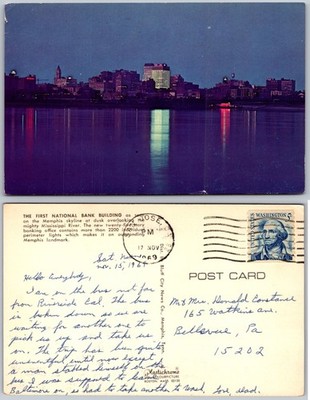 THE FIRST NATIONAL BANK BUILDING as seen
on the Memphis skyline at dusk overlooking
mighty Mississippi River. The new twenty-five story
banking office contains more than 2200 individual
perimeter lights which makes it an outstanding
Memphis landmark.
SAN JOSE,
PM
17 NOV
1969
WASHINGTON 5c
POST CARD
Sat Nov
nov. 15, 1969
Hello Everybody,
I am on the bus not far
from Riverside Cal. The bus
is broken down so we are
waiting for another one to
pick us up and take us
on. The trip has been quite
uneventful until now except
a man stabbed himself on the
bus I was supposed to leave
Baltimore on, so had to take another to Wash. love, dad.
Mr & Mrs. Herald Constance
165 Watkins ave.
Bellevue, Pa
15202
Bluff City News Co., Memphis
Mastichrome